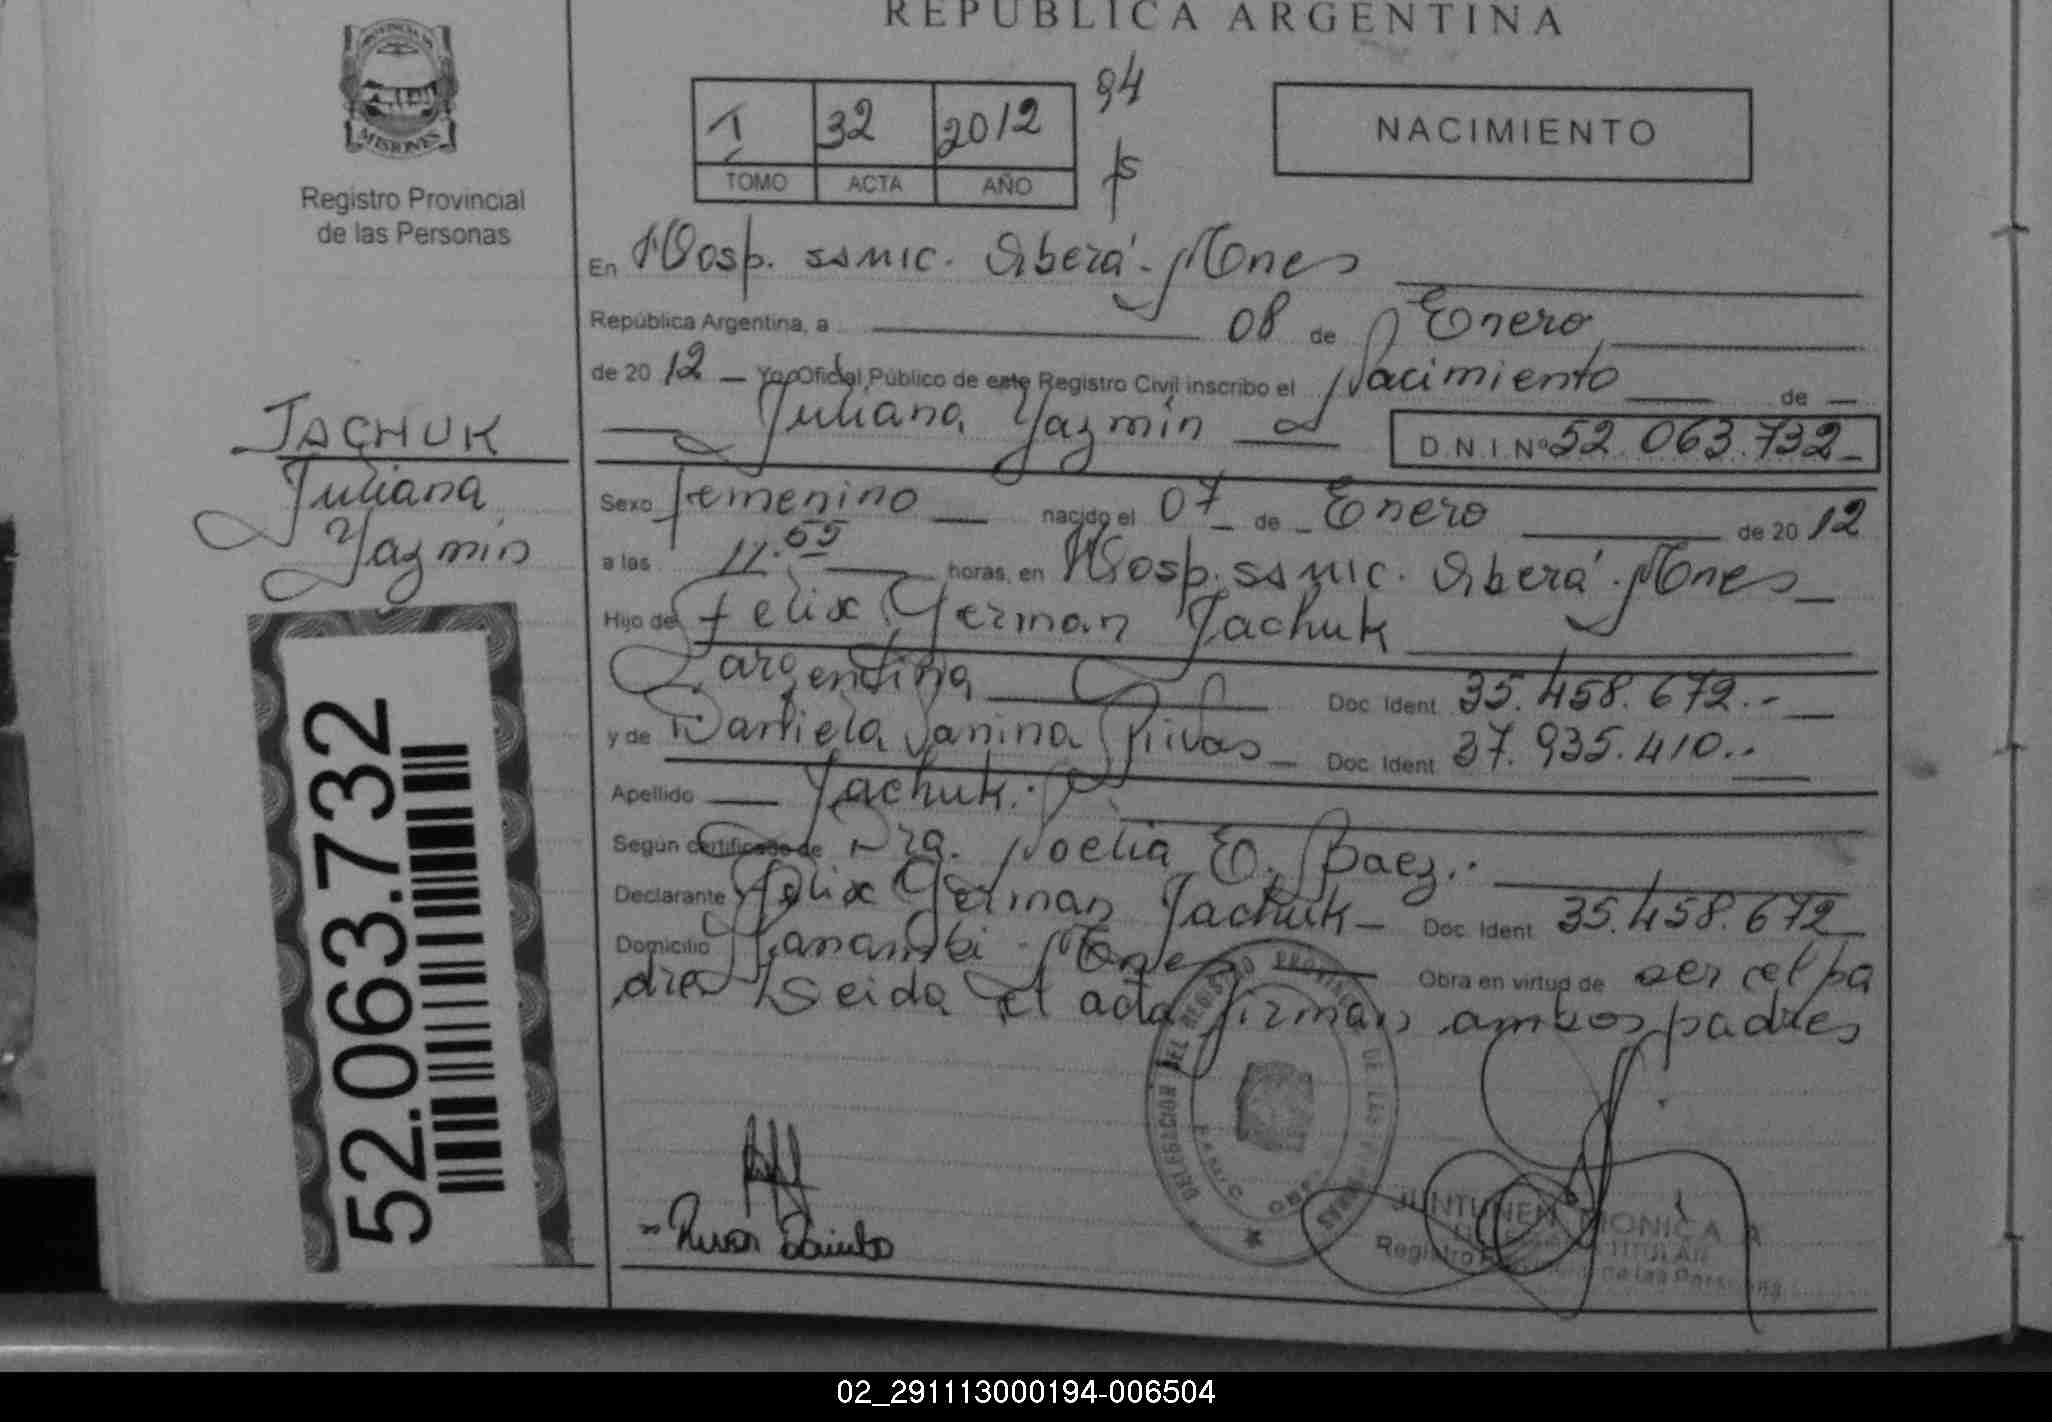 REPUBLICA ARGENTINA
PROVINCIA DE
MISIONES
Registro Provincial
de las Personas
I 32 2012 94
TOMO ACTA AÑO fs
NACIMIENTO
En Hosp. SAMIC. Oberá - Mnes
República Argentina, a 08 de Enero
de 20 12 Yo, Oficial Público de este Registro Civil inscribo el Nacimiento de
Juliana Yazmin D.N.I. Nº 52.063.732
JACHUK
Juliana
Yazmin
Sexo femenino nacido el 07 de Enero de 20 12
a las 11.55 horas, en Hosp. SAMIC. Oberá - Mnes
Hijo de Felix German Jachuk
argentina Doc. Ident. 35.458.672.-
y de Daniela Janina Rivas Doc. Ident. 37.935.410..
Apellido Jachuk.
Según certificado de Dra. Noelia E. Baez.
Declarante Felix German Jachuk Doc. Ident. 35.458.672
Domicilio Panambi - Mnes Obra en virtud de ser el pa
dre Leida el acta firman ambos padres
52.063.732
DELEGACION DEL REGISTRO PROVINCIAL DE LAS PERSONAS
JUNTUNEN MONICA A
TITULAR
Registro Provincial de las Personas
02_291113000194-006504